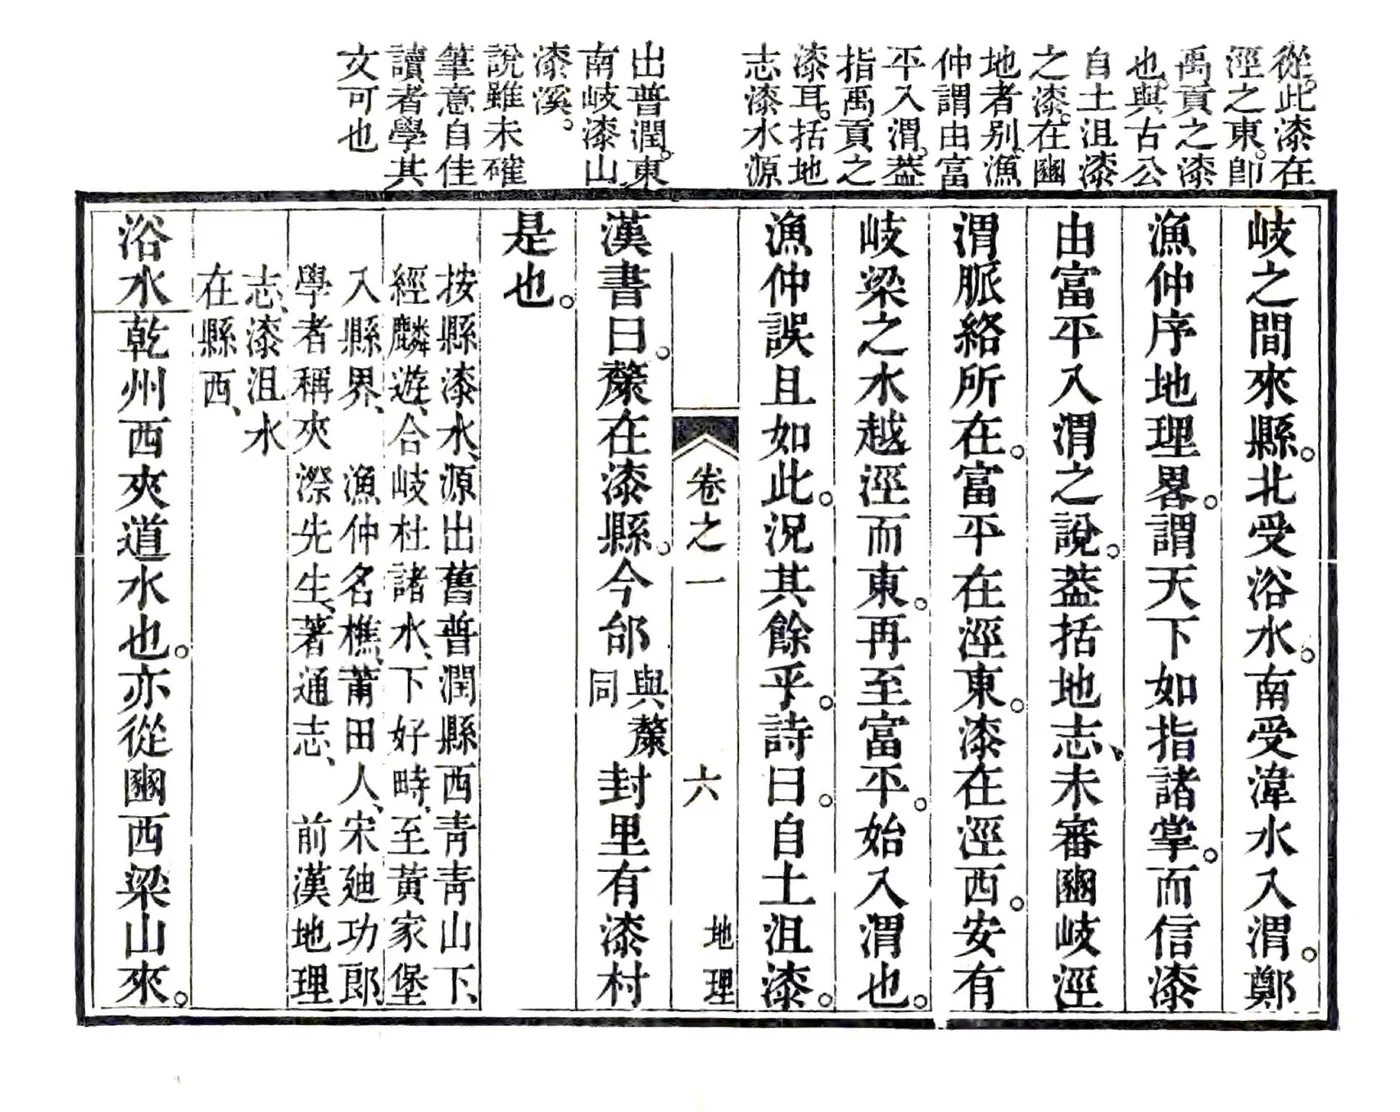 從。此漆在
涇之東。卽
禹貢之漆
也。與古公
自土沮漆
之漆。在豳
地者别。漁
仲謂由富
平入渭。葢
指禹貢之
漆耳。括地
志漆水源
出普潤。東
南岐漆山
漆溪。
說雖未確
筆意自佳
讀者學其
文可也
岐之間來縣。北受浴水。南受湋水入渭。鄭
漁仲序地理畧。謂天下如指諸掌。而信漆
由富平入渭之說。葢括地志、未審豳岐涇
渭脈絡所在。富平在涇東。漆在涇西。安有
岐梁之水越涇而東。再至富平。始入渭也。
漁仲誤且如此。況其餘乎。詩曰。自土沮漆。
卷之一 六 地理
漢書曰。漦在漆縣。今邰與漦同封里有漆村
是也。
按縣漆水、源出舊普潤縣西靑靑山下、
經麟遊、合岐杜諸水、下好畤、至黄家堡
入縣界、 漁仲名樵、莆田人、宋廸功郎、
學者稱夾漈先生、著通志、 前漢地理
志、漆沮水
在縣西、
浴水 乾州西夾道水也。亦從豳西梁山來。